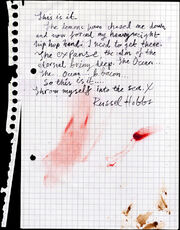 This is it.
The lemmn have chased me down
and now forced my heavyweight
hip hop hand. I need to get there.
The expanse, the calm of the
eternal being, keep. The Ocean
The.. Ocean... beacon...
So this is it....
Throw myself into the sea. X
Russel Hobbs